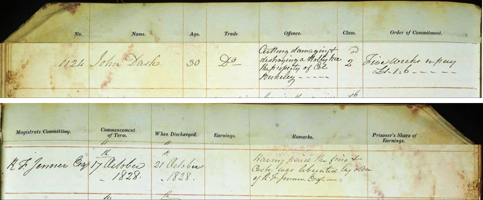 No. Name. Age. Trade. Offence. Class. Order of Commitment.
1124 John Dash 30 Do Cutting damaging & 2d Five Weeks or pay
destroying a Holly tree
the property of Col.
Berkeley
Magistrate Committing. Commencement of Term. When Discharged. Earnings. Remarks. Prisoner's Share of Earnings.
R F Jenner Esq 17th October 21st October Having paid the fine &
1828. 1828. Costs was liberated by order
of R. F. Jenner Esq